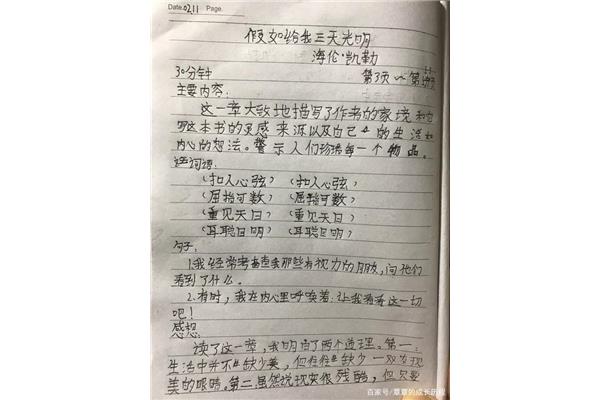 Date. 02.11 Page.
假如给我三天光明
海伦·凯勒
30分钟 第3页 第
主要内容:
这一章大致地描写了作者的家境和
写这本书的灵感来源以及自己的生活和
内心的想法。警示人们珍惜每一个物品。
词语:
(扣人心弦) (扣人心弦)
(屈指可数) (屈指可数)
(重见天日) (重见天日)
(耳聪目明) (耳聪目明)
句子:
1.我经常考查那些有视力的朋友,问他们
看到了什么。
2.有时,我在内心里呼唤着:让我看看这一切
吧!
感想:
读了这一章,我明白了两个道理。第一:
生活中并不缺少美,但往往缺少一双发现
美的眼睛。第二虽然说现实很残酷,但只要
百家号/章章的成长历程